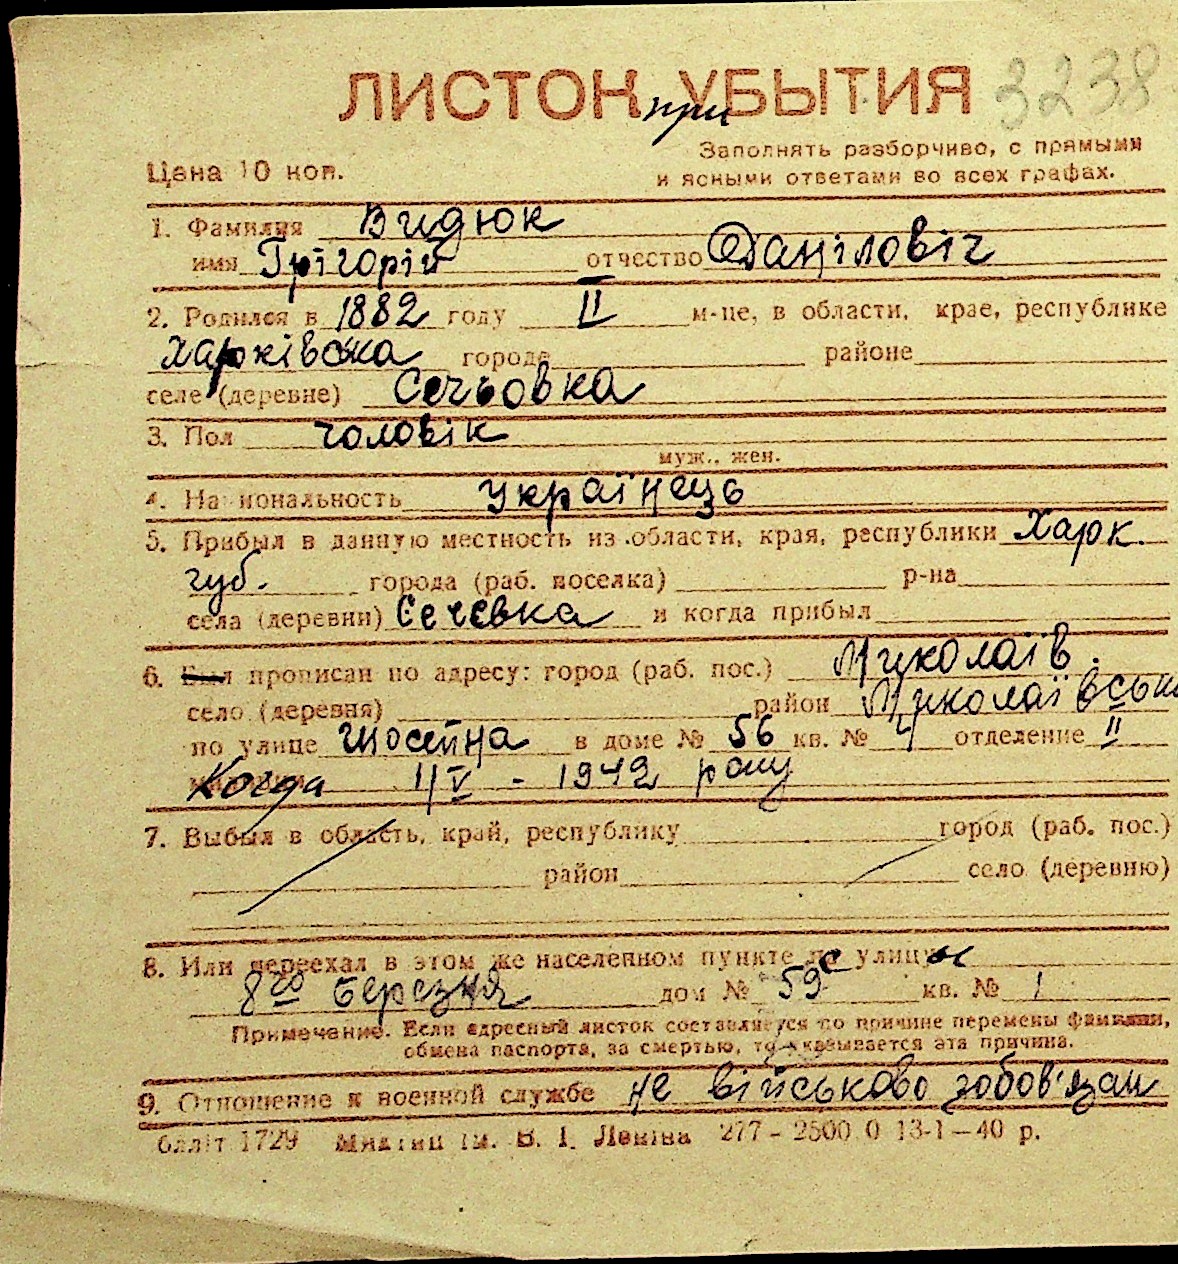 ЛИСТОК при УБЫТИЯ 3238
Заполнять разборчиво, с прямыми
Цена 10 коп. и ясными ответами во всех графах.
1. Фамилия Видюк
имя Грігорій отчество Даніловіч
2. Родился в 1882 году II м-це, в области, крае, республике
Харківська городе районе
селе (деревне) Сечьовка
3. Пол чоловік
муж., жен.
4. Национальность Українець
5. Прибыл в данную местность из области, края, республики Харк.
губ. города (раб. поселка) р-на
села (деревни) Сечевка и когда прибыл
6. Был прописан по адресу: город (раб. пос.) Миколаїв.
село (деревня) район Миколаївськ
по улице Шосейна в доме № 56 кв. № 4 отделение II
Когда 1/V - 1942 року
7. Выбыл в область, край, республику город (раб. пос.)
район село (деревню)
8. Или переехал в этом же населенном пункте с улицы
8го Березня дом № 59 кв. № 1
Примечание. Если адресный листок составляется по причине перемены фамилии,
обмена паспорта, за смертью, то указывается эта причина.
9. Отношение к военной службе не військово зобов'язан
блліт 1729 ім. В. І. Леніна 277-2500 0 13-1-40 р.